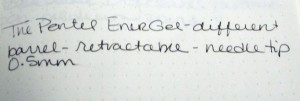 The Pentel EnerGel-different
barrel-retractable-needle tip
0.5mm